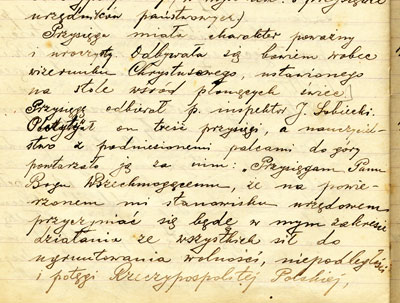 urzędników państwowych.)
Przysięga miała charakter poważny
i uroczysty. Odbywała się bowiem wobec
wizerunku Chrystusowego, ustawionego
na stole wśród płonących świec.
Przysięgę odbierał p. inspektor J. Sobiecki.
Odczytał on treść przysięgi, a nauczyciel-
stwo z podniesionemi palcami do góry
powtarzało ją za nim: „Przysięgam Panu
Bogu Wszechmogącemu, że na powie-
rzonem mi stanowisku urzędowem
przyczyniać się będę w mym zakresie
działania ze wszystkich sił do
ugruntowania wolności, niepodległości
i potęgi Rzeczypospolitej Polskiej,